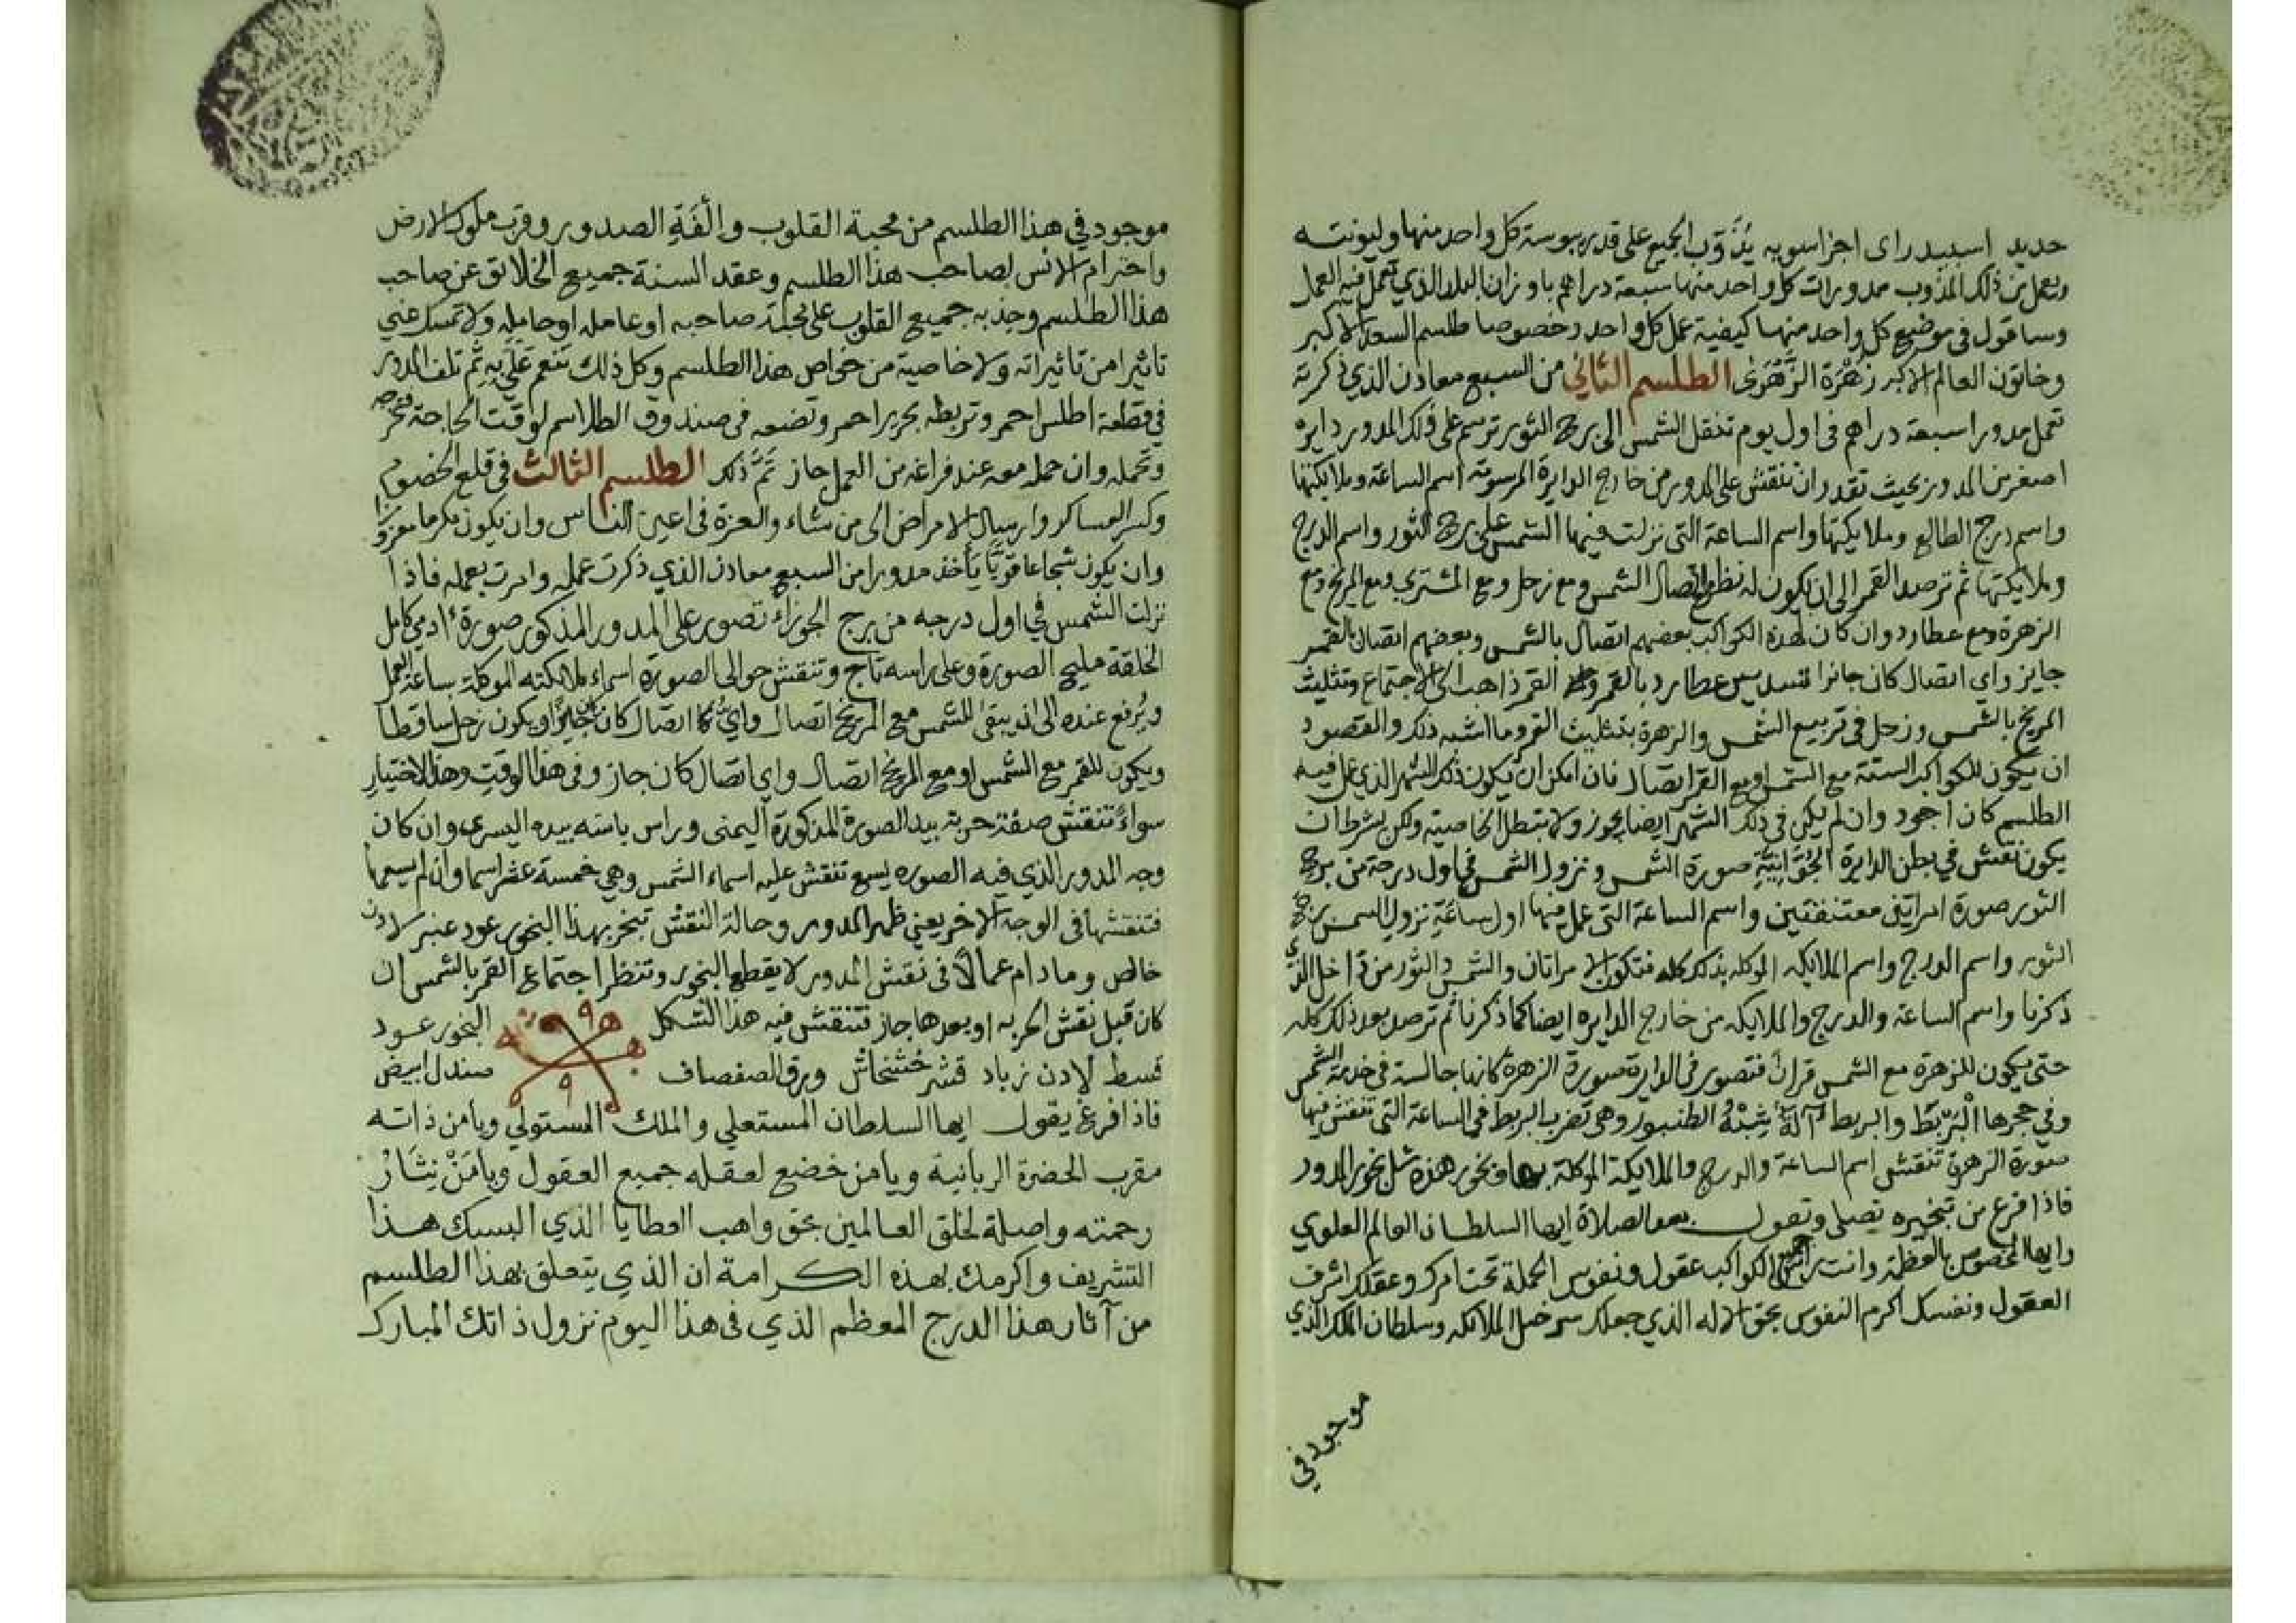 حديد اسبيدراى اجزا سويه يُذَوَّب الجميع على قدر يبوسة كل واحد منها وليونته
ويعمل من ذلك المذوب مدورات كل واحد منها سبعة دراهم باوزان البلد الذي تعمل فيه العمل
وساقول فى موضع كل واحد منها كيفية عمل كل واحد وخصوصا طلسم السعد الاكبر
وخاتون العالم الاكبر زهرة الزَّهَرَى الطلسم الثاني من السبع معادن الذي ذكرته
تعمل مدورا سبعة دراهم فى اول يوم تنقل الشمس الى برج الثور ترسم على ذلك المدور دايره
اصغر من المدور بحيث تقدر ان تنقش على المدور من خارج الدايرة المرسومة اسم الساعة وملايكتها
واسم درج الطالع وملايكتها واسم الساعة التى نزلت فيها الشمس على برج الثور واسم الدرج
وملايكتها ثم ترصد القمر الى ان يكون له نظر اتصال الشمس ومع زحل ومع المشتري ومع المريخ ومع
الزهرة ومع عطارد وان كان لهذه الكواكب بعضهم اتصال بالشمس وبعضهم اتصال بالقمر
جايز واي اتصال كان جائزا لتسديس عطارد بالقمر والقمر ذاهب الى الاجتماع وتثليث
المريخ بالشمس وزحل فى تربيع الشمس والزهرة بتثليث القمر وما اشبه ذلك والمقصود
ان يكون للكواكب الستة مع الشمس او مع القمر اتصال فان امكن ان يكون ذلك الشهر الذي عمل فيه
الطلسم كان اجود وان لم يكن فى ذلك الشهر ايضا يجوز ولا تبطل الخاصية ولكن بشرط ان
يكون نقش في بطن الدايرة الجُوَّانِيَّة صورة الشمس ونزول الشمس في اول درجة من برج
الثور صورة امراتين معتنقتين واسم الساعة التى عمل فيها اول ساعة نزول الشمس برج
الثور واسم الدرج واسم الملايكه الموكله بذلك كله فتكون الامراتان والشمس والثور من داخل الذي
ذكرنا واسم الساعة والدرج والملايكه من خارج الدايره ايضا كما ذكرنا ثم ترصد بعد ذلك كله
حتى يكون للزهرة مع الشمس قران فتصور فى الدايرة صورة الزهرة كانها جالسة فى خدمة الشمس
وفي حجرها الْبَرْبَطَ والبربط آلة يشبه الطنبور وهى تضرب البربط فى الساعة التى تنقش فيها
صورة الزهرة تنقش اسم الساعة والدرج والملايكة الموكلة بها وبخور هذه مثل بخور المدور
فاذا فرغ من تبخيره تصلى وتقول بعد الصلاة ايها السلطان العالم العلوي
وايها المخصوص بالعظمة وانت راس جميع الكواكب عقول ونفوس الجملة تحت امرك وعقلك اشرف
العقول ونفسك اكرم النفوس بحق الاله الذي جعلك سرخيل الملائكه وسلطان الملك الذي
موجود في
موجود في هذا الطلسم من محبة القلوب والُفَةِ الصدور وقرب ملوك الارض
واحترام الانس لصاحب هذا الطلسم وعقد السنة جميع الخلائق عن صاحب
هذا الطلسم وجذبه جميع القلوب على محبة صاحبه او عامله او حامله ولا تمسك عني
تاثيرا من تاثيراته ولا خاصية من خواص هذا الطلسم وكل ذلك تنعم عَلَيَّ بِهِ ثم تلف المدور
فى قطعة اطلس احمر وتربطه بحرير احمر وتضعه فى صندوق الطلاسم لوقت الحاجة تخرجه
وتحمله وان حمله معه عند فراغه من العمل جاز تَمَّ ذلك الطلسم الثالث فى قلع الخصوم
وكسر العساكر وارسال الامراض الى من شاء والعزة فى اعين الناس وان يكون مكرما معززا
وان يكون شجاعا قويًّا يأخذ مدورا من السبع معادن الذي ذكرت عمله وامرت بعمله فاذا
نزلت الشمس في اول درجه من برج الجوزاء تصور على المدور المذكور صورة ادمي كامل
الخلقة مليح الصورة وعلى راسه تاج وتنقش حوالى الصورة اسماء ملائكته الموكلة بساعة العمل
ويُرفع عنده الى ان يبقى للشمس مع المريخ اتصال وايُّ اتصال كان جايزًا ويكون زحل ساقطا
ويكون للقمر مع الشمس او مع المريخ اتصال واي اتصال كان جاز وفى هذا الوقت وهذا الاختيار
سواءً تنقش صفة حربة بيد الصورة المذكورة اليمنى وراس باسه بيده اليسرى وان كان
وجه المدور الذي فيه الصوره يسع تنقش عليه اسماء الشمس وهي خمسة عشر اسما وان لم يسعها
فتنقشها فى الوجه الاخر يعني ظهر المدور وحالة النقش تبخر بهذا البخور عود عنبر لادن
خالص وما دام عمالاً فى نقش المدور لا يقطع البخور وتنظر اجتماع القمر بالشمس ان
كان قبل نقش الحربه او بعدها جاز فتنقش فيه هذا الشكل البخور عود
قسط لادن زباد قشر خشخاش ورق الصفصاف صندل ابيض
فاذا فرغ يقول ايها السلطان المستعلي والملك المستولي ويا من ذاته
مقرب الحضرة الربانية ويا من خضع لعقله جميع العقول ويا مَنْ نِثَارُ
رحمته واصلة لخلق العالمين بحق واهب العطايا الذي البسك هذا
التشريف واكرمك بهذه الكرامة ان الذي يتعلق بهذا الطلسم
من آثار هذا الدرج المعظم الذي فى هذا اليوم نزول ذاتك المبارك